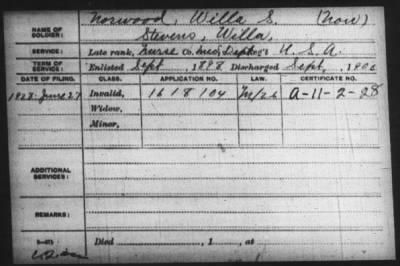 NAME OF SOLDIER: Norwood, Willa S. (Now)
Stevens, Willa,
SERVICE: Late rank, Nurse Co. Med. Dept Reg't U. S. A.
TERM OF SERVICE: Enlisted Sept , 1898 Discharged Sept, , 190
DATE OF FILING. CLASS. APPLICATION NO. LAW. CERTIFICATE NO.
1928 June 27 Invalid, 1618104 A-11-2-28
Widow,
Minor,
ADDITIONAL SERVICES:
REMARKS:
Died , 1 , at